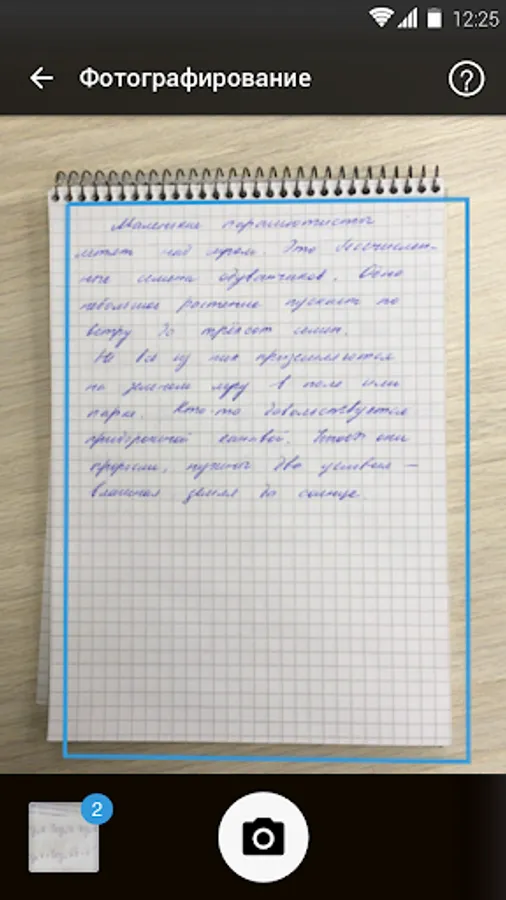 12:25
Фотографирование
Маленькие парашютисты
летят над лугом. Это бесчислен-
ные семена одуванчиков. Одно
небольшое растение пускает по
ветру до трёхсот семян.
Не все из них приземляются
на зеленом лугу в поле или
парке. Кто-то довольствуется
придорожной канавой. Чтобы они
проросли, нужны два условия —
влажная земля да солнце.
2